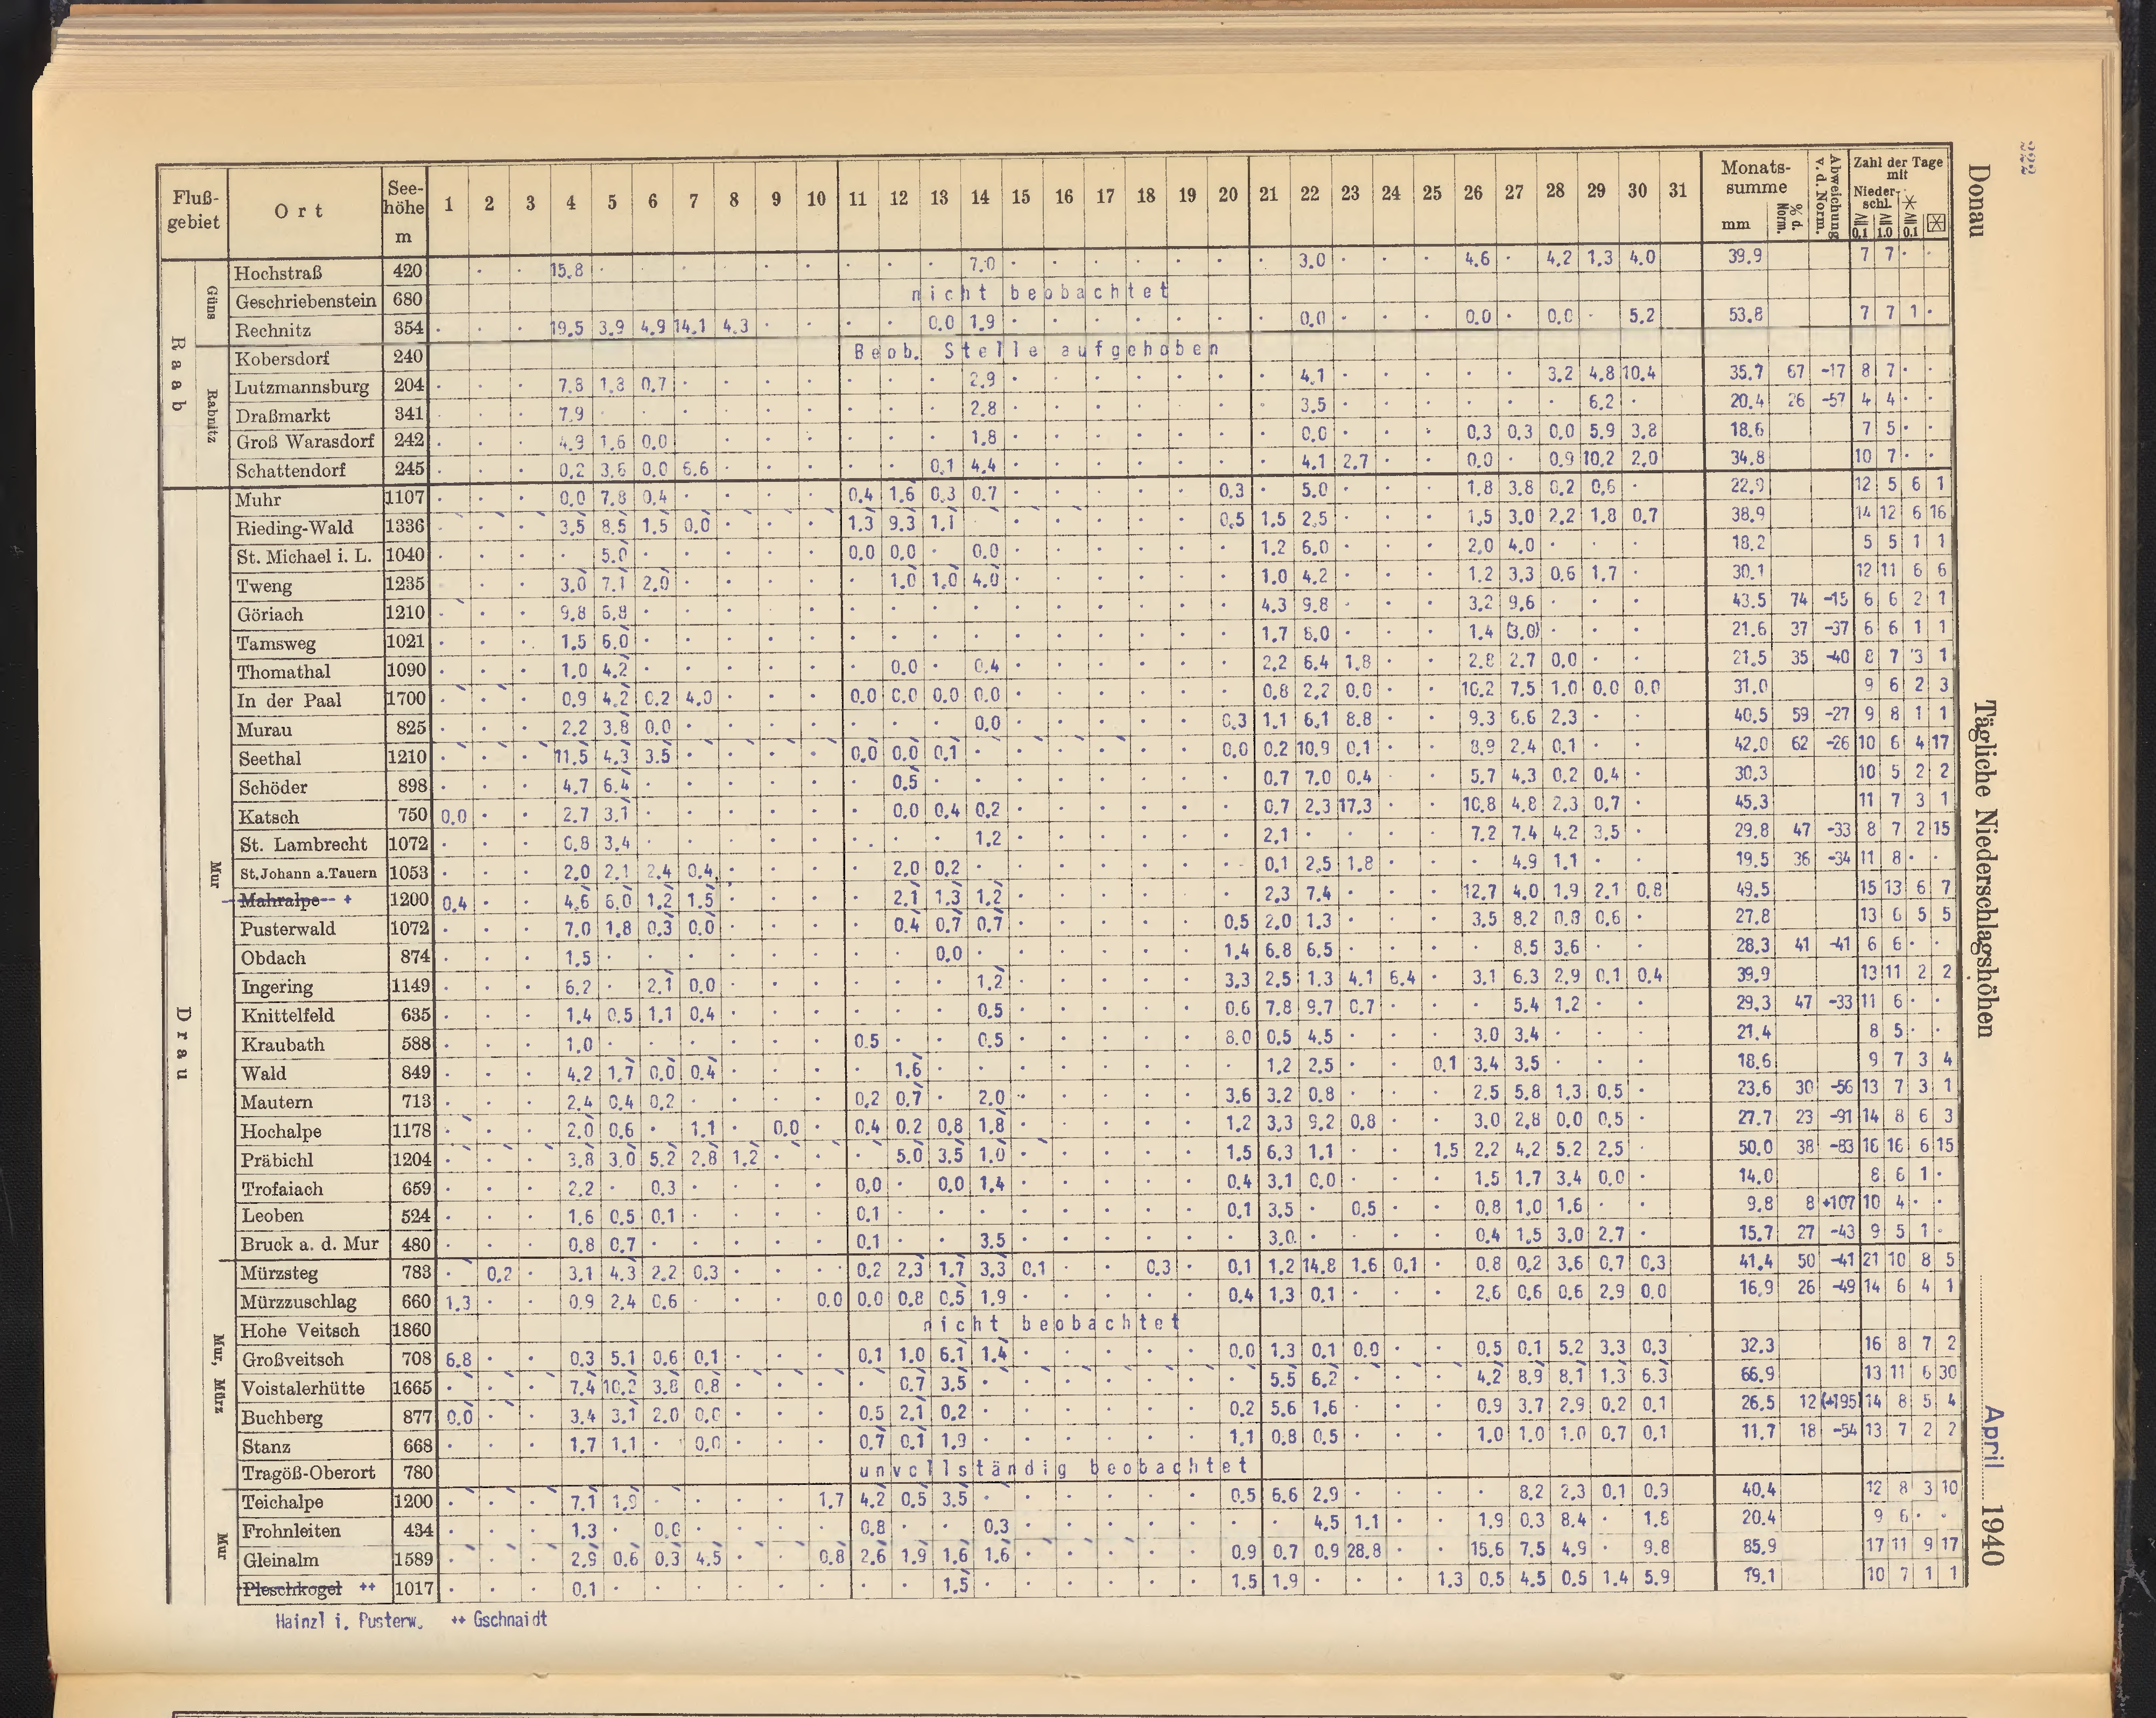 222
Donau
Tägliche Niederschlagshöhen
April 1940
Fluß-gebiet | Ort | See-höhe m | 1 2 3 4 5 6 7 8 9 10 11 12 13 14 15 16 17 18 19 20 21 22 23 24 25 26 27 28 29 30 31 | Monats-summe mm | % d. Norm. | Abweichung v. d. Norm. | Zahl der Tage mit Nieder-schl. ≧ 0.1 ≧ 1.0 ≧ 0.1
Raab
Güns
Hochstraß 420 · · 15.8 · · · · · · · · · 7.0 · · · · · · · 3.0 · · · 4.6 · 4.2 1.3 4.0 39.9 7 7 · ·
Geschriebenstein 680 nicht beobachtet
Rechnitz 354 · · · 19.5 3.9 4.9 14.1 4.3 · · · · 0.0 1.9 · · · · · · · 0.0 · · · 0.0 · 0.0 · 5.2 53.8 7 7 1 ·
Rabnitz
Kobersdorf 240 Beob. Stelle aufgehoben
Lutzmannsburg 204 · · · 7.8 1.3 0.7 · · · · · · · 2.9 · · · · · · · 4.1 · · · · · 3.2 4.8 10.4 35.7 67 -17 8 7 · ·
Draßmarkt 341 · · · 7.9 · · · · · · · · · 2.8 · · · · · · · 3.5 · · · · · · 6.2 · 20.4 26 -57 4 4 · ·
Groß Warasdorf 242 · · · 4.9 1.6 0.0 · · · · · · · 1.8 · · · · · · · 0.0 · · · 0.3 0.3 0.0 5.9 3.8 18.6 7 5 · ·
Schattendorf 245 · · · 0.2 3.6 0.0 6.6 · · · · · 0.1 4.4 · · · · · · · 4.1 2.7 · · 0.0 · 0.9 10.2 2.0 34.8 10 7 · ·
Drau
Mur
Muhr 1107 · · · 0.0 7.8 0.4 · · · · 0.4 1.6 0.3 0.7 · · · · · 0.3 · 5.0 · · · 1.8 3.8 0.2 0.6 · 22.9 12 5 6 1
Rieding-Wald 1336 · · · 3.5 8.5 1.5 0.0 · · · 1.3 9.3 1.1 · · · · · 0.5 1.5 2.5 · · · 1.5 3.0 2.2 1.8 0.7 38.9 14 12 6 16
St. Michael i. L. 1040 · · · · 5.0 · · · · · 0.0 0.0 · 0.0 · · · · · · 1.2 6.0 · · · 2.0 4.0 · · · 18.2 5 5 1 1
Tweng 1235 · · · 3.0 7.1 2.0 · · · · · 1.0 1.0 4.0 · · · · · · 1.0 4.2 · · · 1.2 3.3 0.6 1.7 · 30.1 12 11 6 6
Göriach 1210 · · · 9.8 6.8 · · · · · · · · · · · · · · · 4.3 9.8 · · · 3.2 9.6 · · · 43.5 74 -15 6 6 2 1
Tamsweg 1021 · · · 1.5 6.0 · · · · · · · · · · · · · · · 1.7 8.0 · · · 1.4 (3.0) · · · 21.6 37 -37 6 6 1 1
Thomathal 1090 · · · 1.0 4.2 · · · · · · 0.0 · 0.4 · · · · · · 2.2 6.4 1.8 · · 2.8 2.7 0.0 · · 21.5 35 -40 8 7 3 1
In der Paal 1700 · · · 0.9 4.2 0.2 4.0 · · · 0.0 0.0 0.0 0.0 · · · · · · 0.8 2.2 0.0 · · 10.2 7.5 1.0 0.0 0.0 31.0 9 6 2 3
Murau 825 · · · 2.2 3.8 0.0 · · · · · · · 0.0 · · · · · 0.3 1.1 6.1 8.8 · · 9.3 6.6 2.3 · · 40.5 59 -27 9 8 1 1
Seethal 1210 · · · 11.5 4.3 3.5 · · · · 0.0 0.0 0.1 · · · · · · 0.0 0.2 10.9 0.1 · · 8.9 2.4 0.1 · · 42.0 62 -26 10 6 4 17
Schöder 898 · · · 4.7 6.4 · · · · · · 0.5 · · · · · · · · 0.7 7.0 0.4 · · 5.7 4.3 0.2 0.4 · 30.3 10 5 2 2
Katsch 750 0.0 · · 2.7 3.1 · · · · · · 0.0 0.4 0.2 · · · · · · 0.7 2.3 17.3 · · 10.8 4.8 2.3 0.7 · 45.3 11 7 3 1
St. Lambrecht 1072 · · · 0.8 3.4 · · · · · · · · 1.2 · · · · · · 2.1 · · · · 7.2 7.4 4.2 3.5 · 29.8 47 -33 8 7 2 15
St. Johann a. Tauern 1053 · · · 2.0 2.1 2.4 0.4 · · · · 2.0 0.2 · · · · · · · 0.1 2.5 1.8 · · · 4.9 1.1 · · 19.5 36 -34 11 8 · ·
Mahralpe + 1200 0.4 · · 4.6 6.0 1.2 1.5 · · · · 2.1 1.3 1.2 · · · · · · 2.3 7.4 · · · 12.7 4.0 1.9 2.1 0.8 49.5 15 13 6 7
Pusterwald 1072 · · · 7.0 1.8 0.3 0.0 · · · · 0.4 0.7 0.7 · · · · · 0.5 2.0 1.3 · · · 3.5 8.2 0.8 0.6 · 27.8 13 6 5 5
Obdach 874 · · · 1.5 · · · · · · · · 0.0 · · · · · · 1.4 6.8 6.5 · · · · 8.5 3.6 · · 28.3 41 -41 6 6 · ·
Ingering 1149 · · · 6.2 · 2.1 0.0 · · · · · · 1.2 · · · · · 3.3 2.5 1.3 4.1 6.4 · 3.1 6.3 2.9 0.1 0.4 39.9 13 11 2 2
Knittelfeld 635 · · · 1.4 0.5 1.1 0.4 · · · · · · 0.5 · · · · · 0.6 7.8 9.7 0.7 · · · 5.4 1.2 · · 29.3 47 -33 11 6 · ·
Kraubath 588 · · · 1.0 · · · · · · 0.5 · · 0.5 · · · · · 8.0 0.5 4.5 · · · 3.0 3.4 · · · 21.4 8 5 · ·
Wald 849 · · · 4.2 1.7 0.0 0.4 · · · · 1.6 · · · · · · · · 1.2 2.5 · · 0.1 3.4 3.5 · · · 18.6 9 7 3 4
Mautern 713 · · · 2.4 0.4 0.2 · · · · 0.2 0.7 · 2.0 · · · · · 3.6 3.2 0.8 · · · 2.5 5.8 1.3 0.5 · 23.6 30 -56 13 7 3 1
Hochalpe 1178 · · · 2.0 0.6 · 1.1 · 0.0 · 0.4 0.2 0.8 1.8 · · · · · 1.2 3.3 9.2 0.8 · · 3.0 2.8 0.0 0.5 · 27.7 23 -91 14 8 6 3
Präbichl 1204 · · · 3.8 3.0 5.2 2.8 1.2 · · · 5.0 3.5 1.0 · · · · · 1.5 6.3 1.1 · · 1.5 2.2 4.2 5.2 2.5 · 50.0 38 -83 16 16 6 15
Trofaiach 659 · · · 2.2 · 0.3 · · · · 0.0 · 0.0 1.4 · · · · · 0.4 3.1 0.0 · · · 1.5 1.7 3.4 0.0 · 14.0 8 6 1 ·
Leoben 524 · · · 1.6 0.5 0.1 · · · · 0.1 · · · · · · · · 0.1 3.5 · 0.5 · · 0.8 1.0 1.6 · · 9.8 8 +107 10 4 · ·
Bruck a. d. Mur 480 · · · 0.8 0.7 · · · · · 0.1 · · 3.5 · · · · · · 3.0 · · · · 0.4 1.5 3.0 2.7 · 15.7 27 -43 9 5 1 ·
Mur, Mürz
Mürzsteg 783 · 0.2 · 3.1 4.3 2.2 0.3 · · · 0.2 2.3 1.7 3.3 0.1 · · 0.3 · 0.1 1.2 14.8 1.6 0.1 · 0.8 0.2 3.6 0.7 0.3 41.4 50 -41 21 10 8 5
Mürzzuschlag 660 1.3 · · 0.9 2.4 0.6 · · · 0.0 0.0 0.8 0.5 1.9 · · · · · 0.4 1.3 0.1 · · · 2.6 0.6 0.6 2.9 0.0 16.9 26 -49 14 6 4 1
Hohe Veitsch 1860 nicht beobachtet
Großveitsch 708 6.8 · · 0.3 5.1 0.6 0.1 · · · 0.1 1.0 6.1 1.4 · · · · · 0.0 1.3 0.1 0.0 · · 0.5 0.1 5.2 3.3 0.3 32.3 16 8 7 2
Voistalerhütte 1665 · · · 7.4 10.2 3.8 0.8 · · · · 0.7 3.5 · · · · · · · 5.5 6.2 · · · 4.2 8.9 8.1 1.3 6.3 66.9 13 11 6 30
Buchberg 877 0.0 · · 3.4 3.1 2.0 0.0 · · · 0.5 2.1 0.2 · · · · · · 0.2 5.6 1.6 · · · 0.9 3.7 2.9 0.2 0.1 26.5 12 (+195) 14 8 5 4
Stanz 668 · · · 1.7 1.1 · 0.0 · · · 0.7 0.1 1.9 · · · · · · 1.1 0.8 0.5 · · · 1.0 1.0 1.0 0.7 0.1 11.7 18 -54 13 7 2 2
Tragöß-Oberort 780 unvollständig beobachtet
Mur
Teichalpe 1200 · · · 7.1 1.9 · · · · 1.7 4.2 0.5 3.5 · · · · · · 0.5 6.6 2.9 · · · · 8.2 2.3 0.1 0.9 40.4 12 8 3 10
Frohnleiten 434 · · · 1.3 · 0.0 · · · · 0.8 · · 0.3 · · · · · · · 4.5 1.1 · · 1.9 0.3 8.4 · 1.8 20.4 9 6 · ·
Gleinalm 1589 · · · 2.9 0.6 0.3 4.5 · · 0.8 2.6 1.9 1.6 1.6 · · · · · 0.9 0.7 0.9 28.8 · · 15.6 7.5 4.9 · 9.8 85.9 17 11 9 17
Pleschkogel ++ 1017 · · · 0.1 · · · · · · · · 1.5 · · · · · · 1.5 1.9 · · · 1.3 0.5 4.5 0.5 1.4 5.9 19.1 10 7 1 1
Hainzl i. Pusterw. ++ Gschnaidt